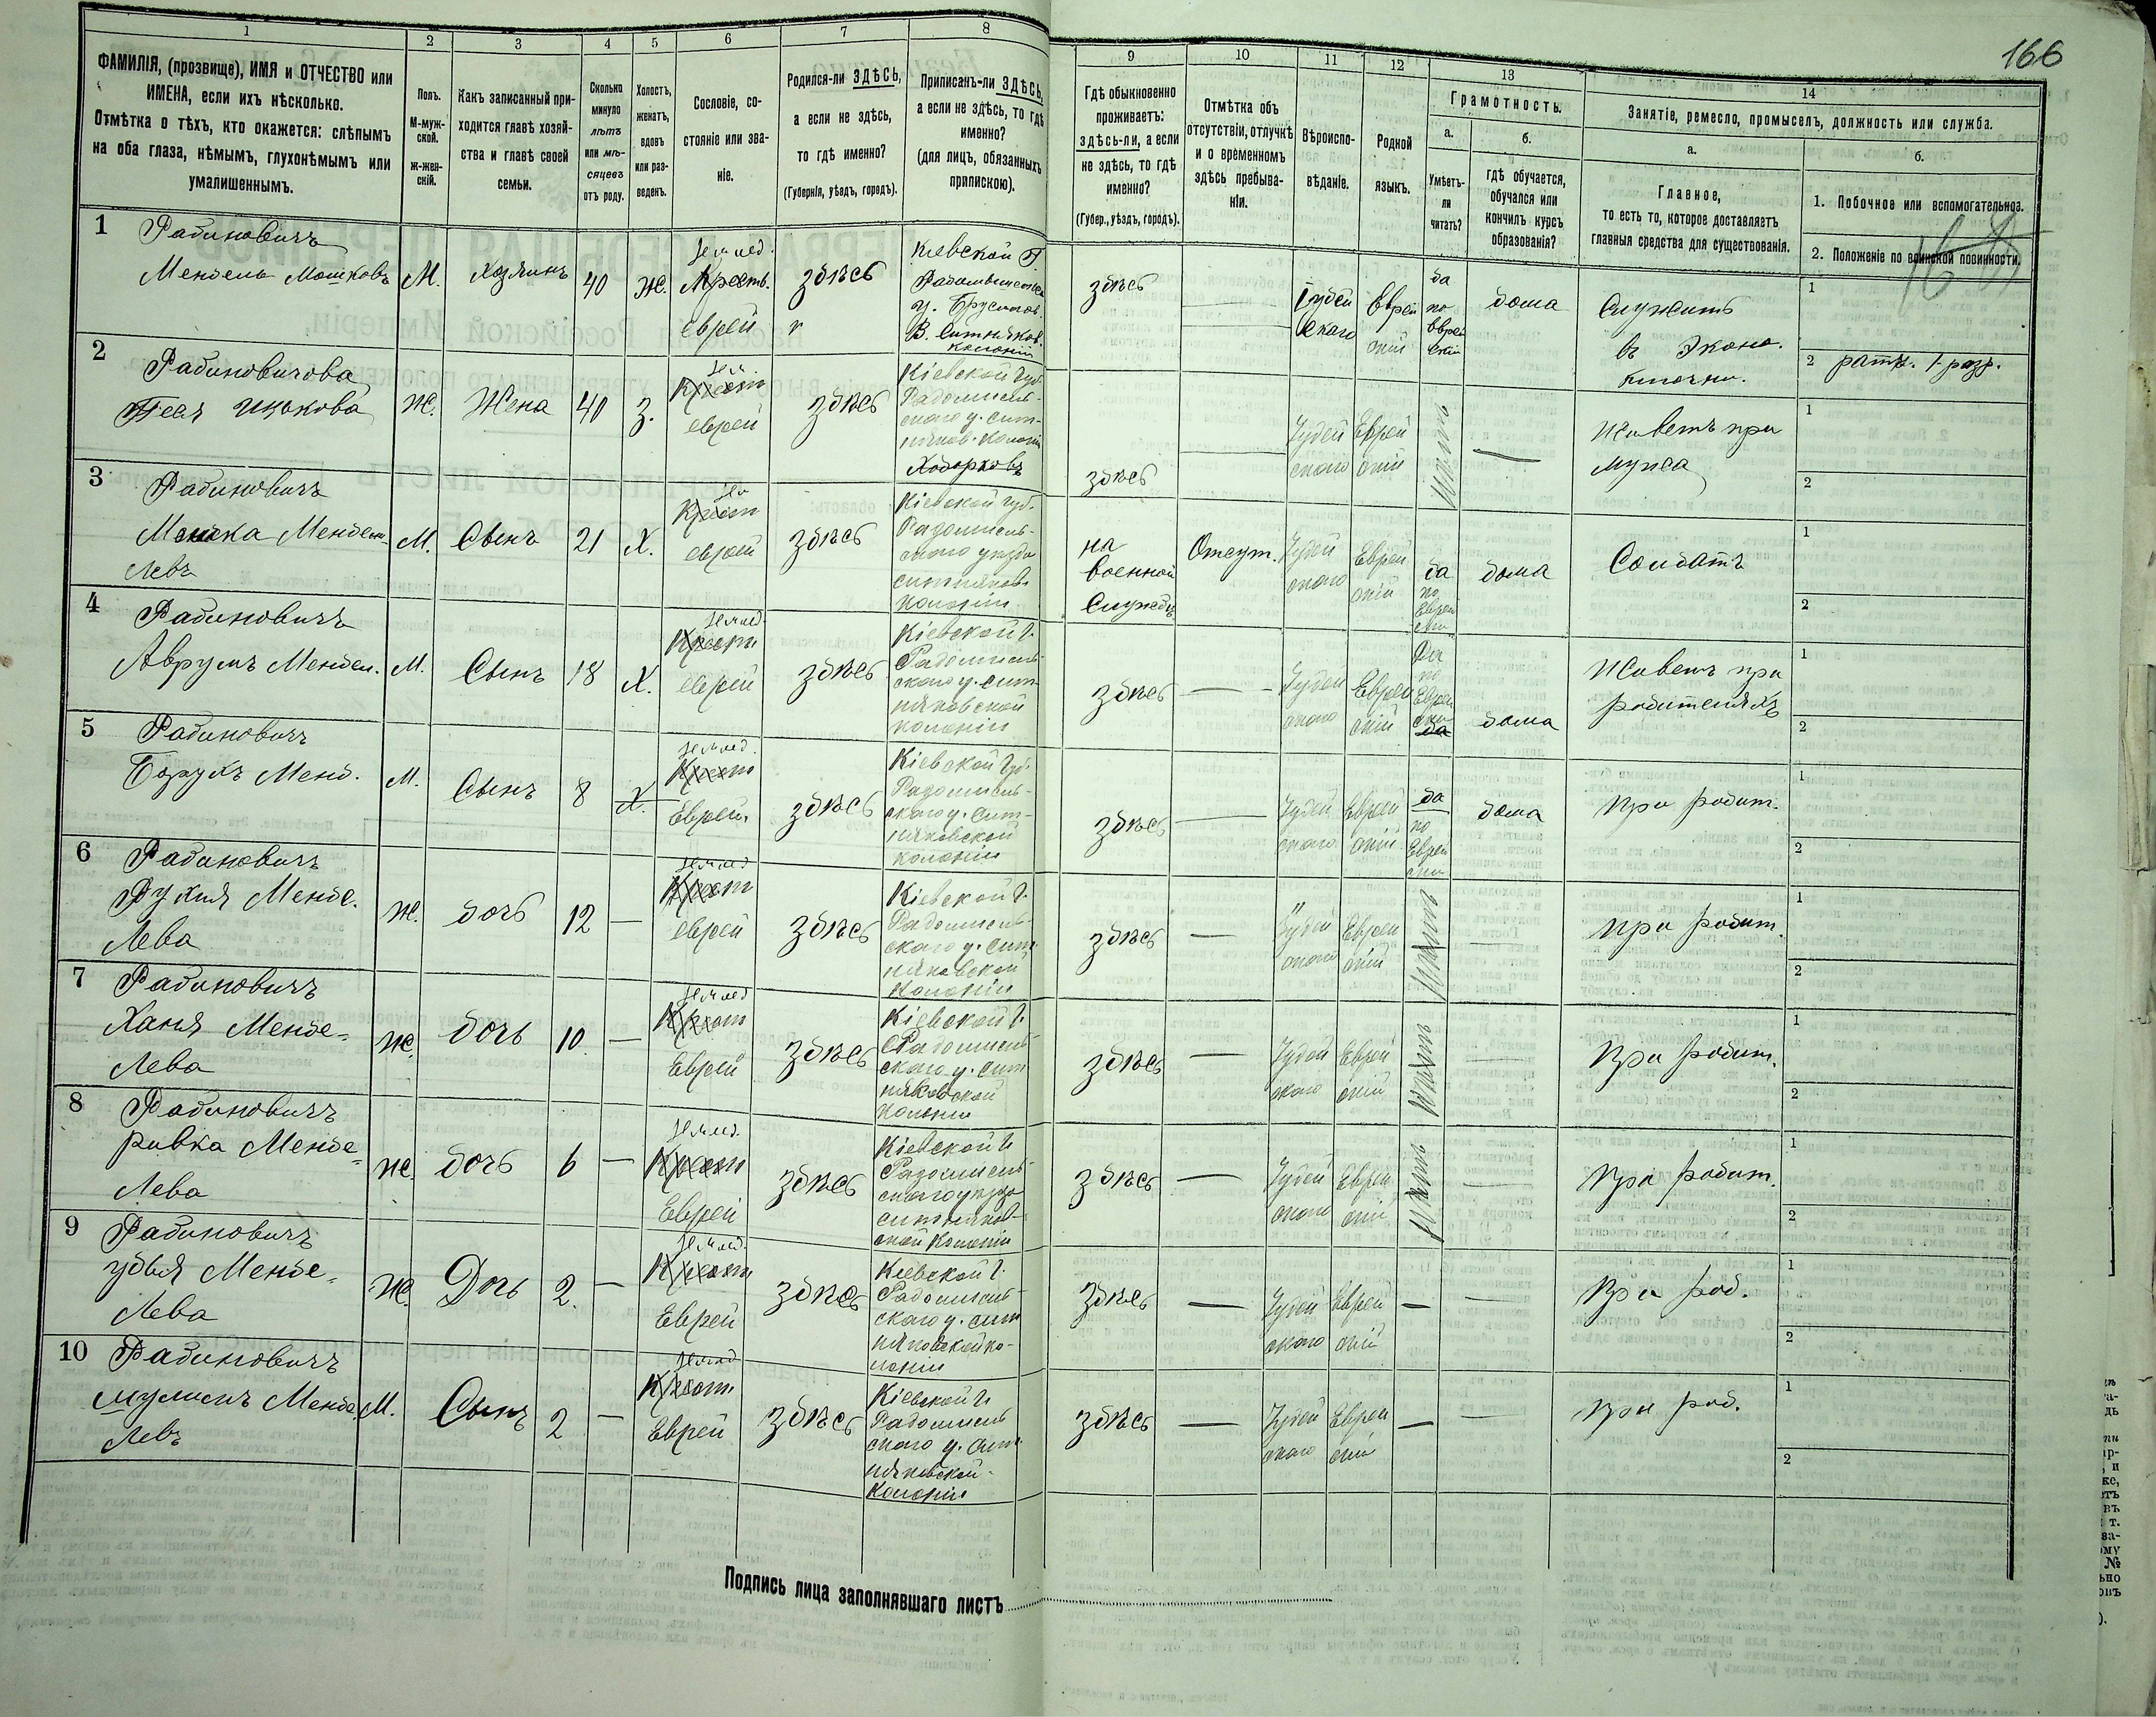 166
1
2
3
4
5
6
7
8
9
10
11
12
13
14
ФАМИЛІЯ, (прозвище), ИМЯ и ОТЧЕСТВО или
ИМЕНА, если ихъ нѣсколько.
Отмѣтка о тѣхъ, кто окажется: слѣпымъ
на оба глаза, нѣмымъ, глухонѣмымъ или
умалишеннымъ.
Полъ.
М-муж-
ской.
ж-жен-
скій.
Какъ записанный при-
ходится главѣ хозяй-
ства и главѣ своей
семьи.
Сколько
минуло
лѣтъ
или мѣ-
сяцевъ
отъ роду.
Холостъ,
женатъ,
вдовъ
или раз-
веденъ.
Сословіе, со-
стояніе или зва-
ніе.
Родился-ли ЗДѢСЬ,
а если не здѣсь,
то гдѣ именно?
(Губернія, уѣздъ, городъ).
Приписанъ-ли ЗДѢСЬ,
а если не здѣсь, то гдѣ
именно?
(для лицъ, обязанныхъ
припискою).
Гдѣ обыкновенно
проживаетъ:
здѣсь-ли, а если
не здѣсь, то гдѣ
именно?
(Губер., уѣздъ, городъ).
Отмѣтка объ
отсутствіи, отлучкѣ
и о временномъ
здѣсь пребыва-
ніи.
Вѣроиспо-
вѣданіе.
Родной
языкъ.
Грамотность.
а.
Умѣетъ-
ли
читать?
б.
гдѣ обучается,
обучался или
кончилъ курсъ
образованія?
Занятіе, ремесло, промыселъ, должность или служба.
а.
Главное,
то есть то, которое доставляетъ
главныя средства для существованія.
б.
1. Побочное или вспомогательное.
2. Положеніе по воинской повинности.
1
Рабиновичъ
Мендель Мошковъ
М.
Хозяинъ
40
Ж.
Землед.
Крестъ.
еврей
здѣсь
Кіевской Г.
у. Брусилов.
В. Ситняков.
колоніи
здѣсь
Іудей
скаго
Еврей
скій
да
по
Еврей
скіи
дома
Служитъ
въ Эконо.
1
2 ратн. 1 разр.
2
Рабиновичова
Ицькова
Ж.
Жена
40
З.
Зем.
Крест
еврей
здѣсь
Кіевской Губ.
Радомысль-
скаго у. Сит-
няков. колоніи
Ходорковъ
здѣсь
Іудей
скаго
Еврей
скій
Живетъ при
мужа
1
2
3
Рабиновичъ
Мошка Мендель-
левъ
М.
Сынъ
21
Х.
Зем
Крест
еврей
здѣсь
Кіевской губ.
Радомысль-
скаго уѣзда
ситняковс
колоніи
на
военной
Службѣ
Отсут.
Іудей
скаго
Еврей
скій
да
по
Еврей
ски
дома
Солдатъ
1
2
4
Рабиновичъ
Аврумъ Мендел.
М.
Сынъ
18
Х.
Землед.
Крест
еврей
здѣсь
Кіевской г.
Радомысль-
скаго у. сит-
няковской
колоніи
здѣсь
Іудей
скаго
Еврей
скій
Да
по
Еврей
ски
да
дома
Живетъ при
родителяхъ
1
2
5
Рабиновичъ
Борухъ Менд.
М.
Сынъ
8
Х.
Землед.
Крест
Еврей.
здѣсь
Кіевской Губ.
Радомысль-
скаго у. Сит-
няковской
колоніи
здѣсь
Іудей
скаго
Еврей
скій
да
по
Еврей
ски
дома
При родит.
1
2
6
Рабиновичъ
Рухля Менде.
лева
Ж.
дочь
12
Землед
Крест
еврей
здѣсь
Кіевской г.
Радомысль-
скаго у. сит
няковской
колоніи
здѣсь
Іудей
скаго
Еврей
скій
при родит.
1
2
7
Рабиновичъ
Хания Менде-
лева
Ж.
дочь
10
Землед
Крест
Еврей
здѣсь
Кіевской г.
Радомысль-
скаго у. сит
няковской
колоніи
здѣсь
Іудей
скаго
Еврей
скій
При родит.
1
2
8
Рабиновичъ
Ривка Менде-
лева
Ж.
дочь
6
Землед.
Крест
Еврей
здѣсь
Кіевской г.
Радомысль-
скаго уѣзда
ситняков-
ской колоніи
здѣсь
Іудей
скаго
Еврей
скій
При родит.
1
2
9
Рабиновичъ
Менде-
лева
Ж.
Дочь
2.
Землед.
Крест
Еврей
здѣсь
Кіевской г.
Радомысль-
скаго у. сит
няковской ко-
лоніи
здѣсь
Іудей
скаго
Еврей
скій
При род.
1
2
10
Рабиновичъ
Менде
левъ
М.
Сынъ
2
Землед
Крест.
Еврей
здѣсь
Кіевской г.
Радомысль
скаго у. сит-
няковской-
колоніи
здѣсь
Іудей
скаго
Еврей
скій
При род.
1
2
Подпись лица заполнявшаго листъ